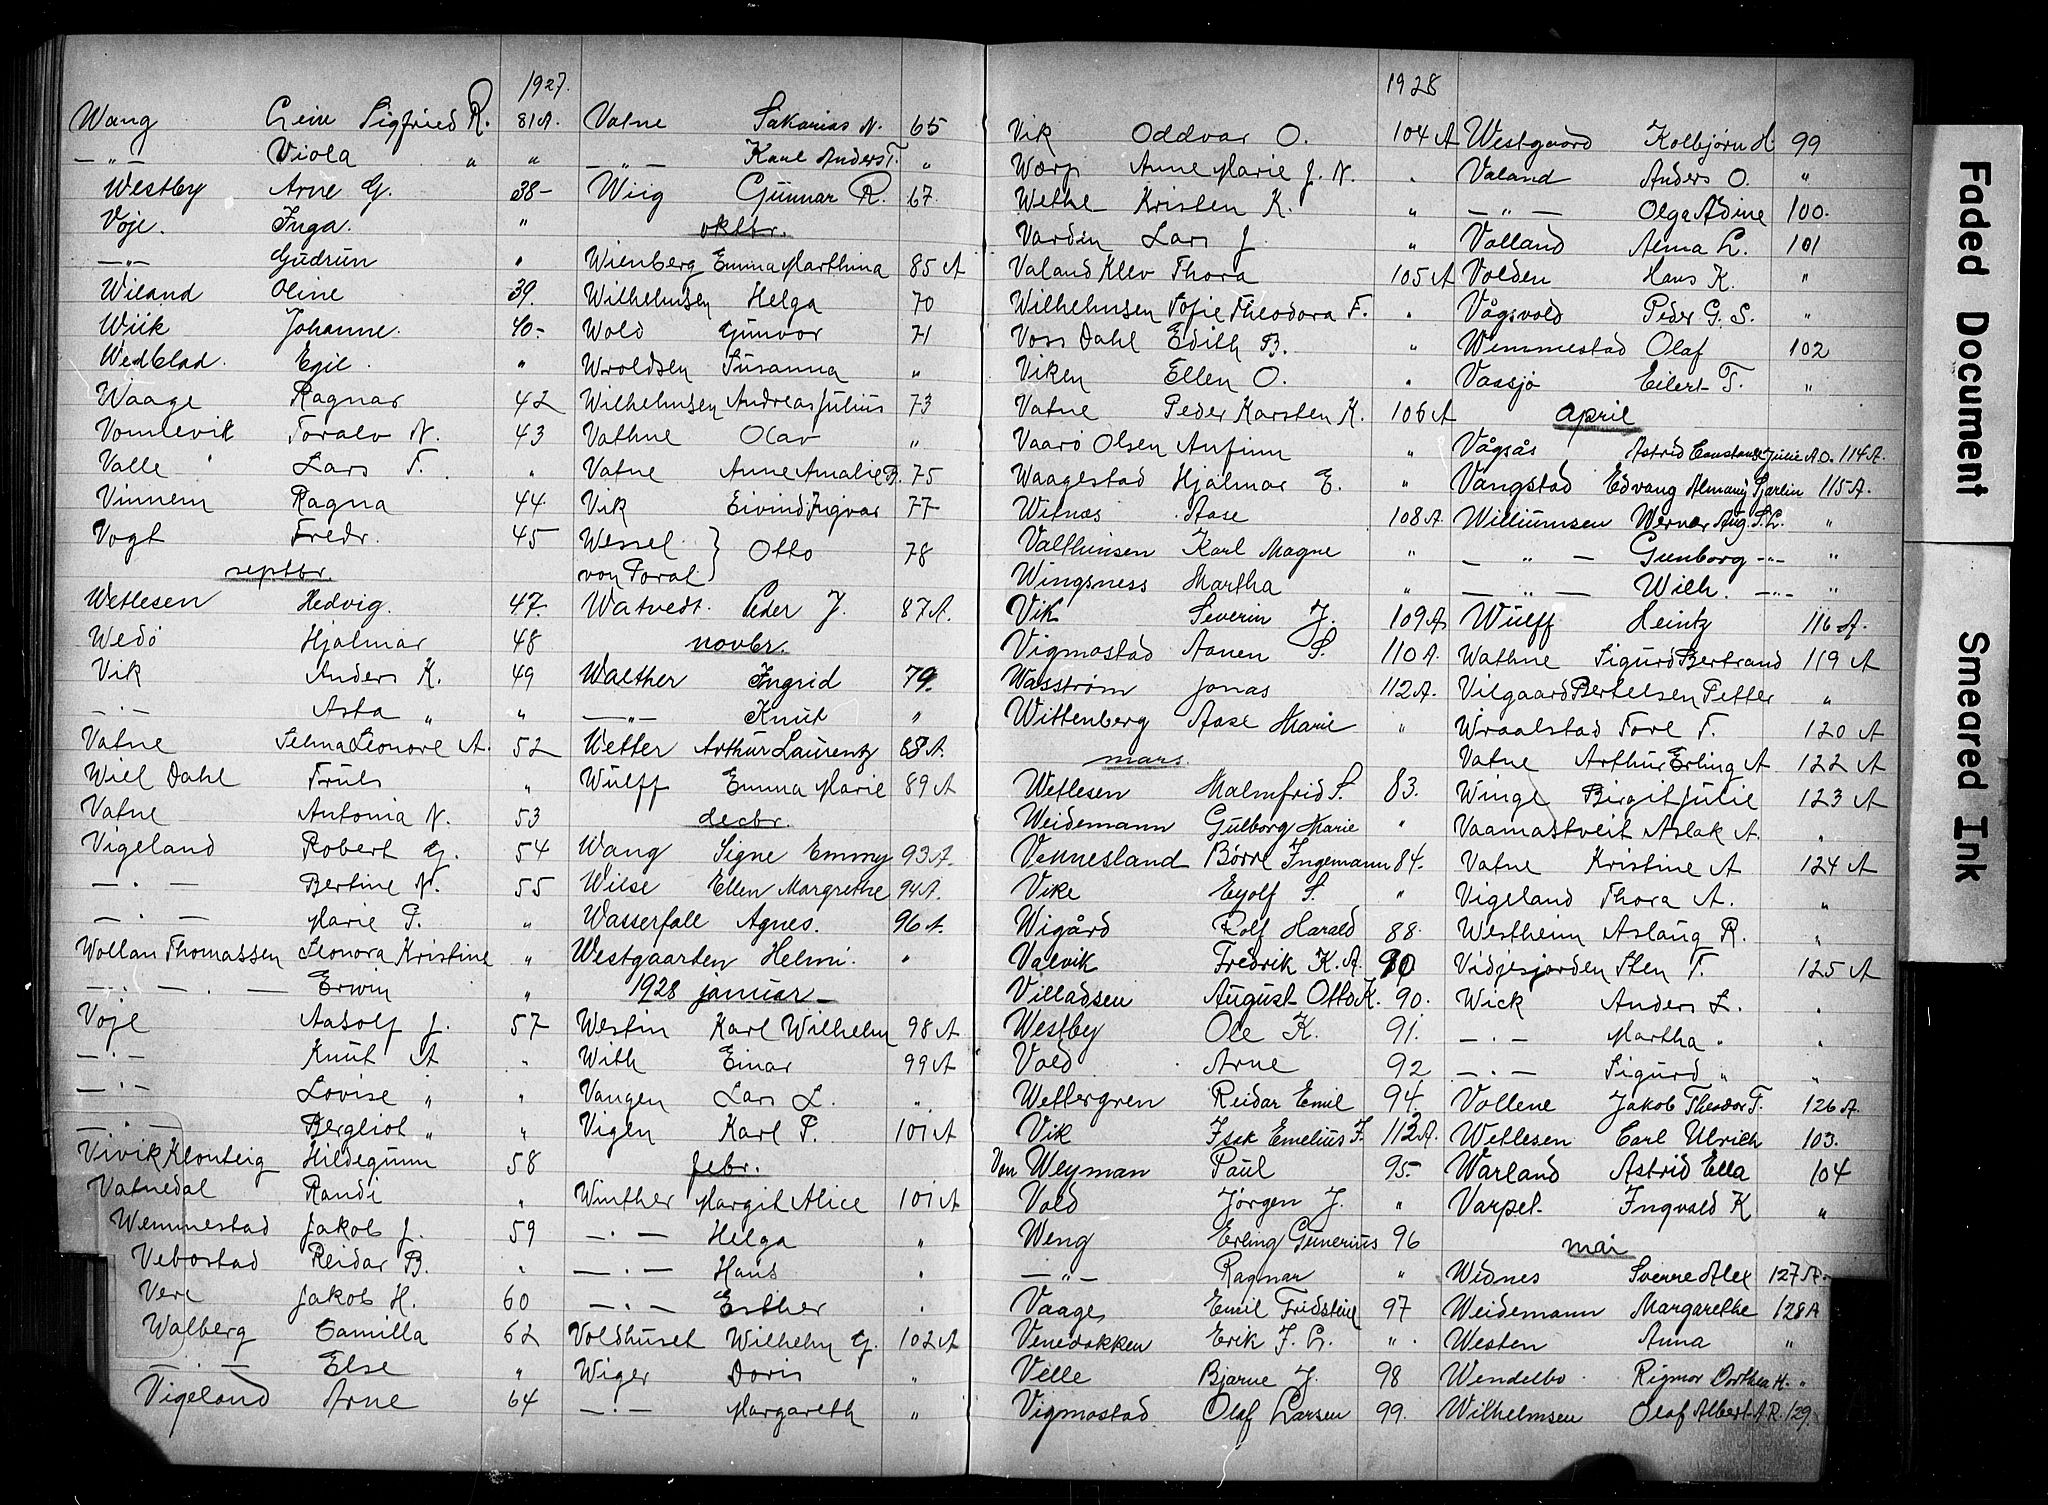 1927.
Wang Leire Sigfried R. 81A.
—„— Viola „ „
Westby Arne G. 38-
Voje. Inga. „
—„— Gudrun „
Wiland Oline 39.
Wiik Johanne. 40-
Wedblad. Egil. „
Waage Ragnar 42
Vonnevik Toralv N. 43
Valle Lars T. „
Vinnem Ragna 44
Vogt Fredr. 45
septbr.
Wetlesen Hedvig. 47.
Wedö Hjalmar 48
Vik Anders K. 49
—.— Asta „ „
Vatne Selma Leonore A. 52
Wiel Dahl Truls „
Vatne Antonia N. 53
Vigeland Robert G. 54
—.— Bertine N. 55
—.— Marie P. „
Wollan Thomassen Leonora Kristine „
—.—.— Erwin „
Voje Aasolf J. 57
—.— Knut A „
—.— Lovise „ „
—.— Bergliot „ „
Vivik Klonteig Hildegunn 58
Vatnedal Randi „
Wemmestad Jakob J. 59
Vebostad Reidar B. „
Vere Jakob H. 60
Walberg Camilla 62
—.— Else „
Vigeland Arne 64
Vatne Sakarias N. 65
—„— Karl Anders T. „
Wiig Gunnar R. 67.
oktbr.
Wienberg Emma Marthina 85 A
Wilhelmsen Helga 70
Wold Gunvor 71
Wroldsen Susanna „
Wilhelmsen Andreas Julius 73
Vathne Olav „
Vatne Anne Amalie B. 75
Vik Eivind Ingvar 77
Wessel von Porat } Otto 78
Watvedt. Peder J. 87 A.
novbr.
Walther Ingrid 79.
—„— Knut „
Wetter Arthur Laurentz 88 A.
Wulff Emma Marie 89 A
decbr.
Wang Signe Emmy 93 A.
Wilse Ellen Margrethe 94 A.
Wasserfall Agnes. 96 A.
Westgaarten Helmi. „
1928 januar
Westin Karl Wilhelm 98 A
With Einar 99 A
Vangen Lars L. „
Vigen Karl P. 101 A
febr.
Winther Margit Alice 101 A
—.— Helga „
—.— Hans „
—.— Esther „
Voldhuset Wilhelm G. 102 A
Wiger Doris „
—.— Margareth „
1928
Vik Oddvar O. 104 A
Wærp Anne Marie J. N. „
Wethe Kristen K. „
Vardin Lars J. „
Valand Klev Thora 105 A
Wilhelmsen Sofie Theodora F. „
Voss Dahl Edith B. „
Viken Ellen O. „
Vatne Peder Karsten K. 106 A
Vaarö Olsen Anfinn „
Waagestad Hjalmar E. „
Witnæs Aase 108 A.
Valthinsen Karl Magne „
Wingsness Martha „
Vik Severin J. 109 A
Vigmostad Aanen S. 110 A.
Wasström Jonas 112 A.
Wittenberg Aase Marie „
mars.
Wetlesen Malmfrid S. 83.
Weidemann Gulborg Marie „
Vennesland Börre Ingemann 84.
Vike Eyolf S. „
Wigård Rolf Harald 88.
Valvik Fredrik K. A. 90
Villadsen August Otto K. 90.
Westby Ole K. 91.
Vold Arne 92
Wettergren Reidar Emil 94.
Vik Isak Emelius F. 112 A.
Von Weyman Paul 95-
Vold Jørgen J. „
Weng Erling Gunerius 96
—„— Ragnar „
Vaage Emil Fridstein 97
Venedokken Erik J. L. „
Velle Bjarne J. 98
Vigmostad Olaf Larsen 99.
Westgaard Kolbjørn H 99
Valand Anders O. „
—„— Olga Adine 100.
Valland Alma L. 101
Volden Hans K. „
Vågsvold Peder G. S. „
Wemmestad Olaf 102
Vaasjø Eilert T. „
april
Vågsås Astrid Constance Julie A. O. 114 A.
Vangstad Edvang Almany Sjarlin 115 A.
Williumsen Werner Aug. S. L. „
—„— Gunborg —„— „
—„— Wilh. —„— „
Wulff Heintz 116 A.
Wathne Sigurd Bertrand 119 A
Vilgaard Bertelsen Petter „
Wraalstad Tore T. 120 A
Vatne Arthur Erling A 122 A
Winge Birgit Julie 123 A
Vaamastveit Aslak A. „
Vatne Kristine A 124 A
Vigeland Thora A. „
Westheim Aslaug R. „
Vidjesjorden Sten T. 125 A
Wick Anders L. „
—.— Martha „ „
—.— Sigurd „ „
Vollene Jakob Theodor T. 126 A.
Wetlesen Carl Ulrich 103.
Warland Astrid Ella 104
Varpet Ingvald K „
mai
Widnes Sverre Alex 127 A.
Weidemann Margarethe 128 A
Westen Anna „
Wendelbo Rigmor Dorthea H. „
Wilhelmsen Olaf Albert A. R. 129.
Faded Document
Smeared Ink